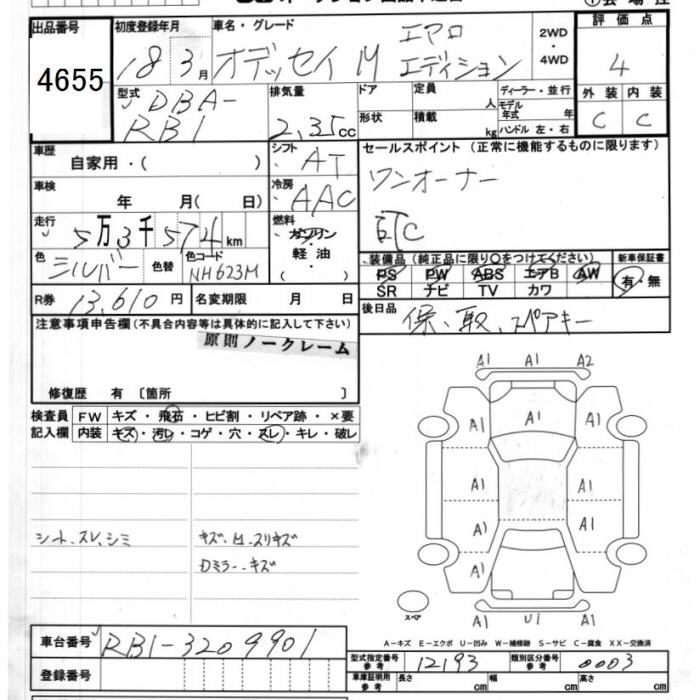 出品番号 初度登録年月 車名・グレード 評価点
4655 18 3月 オデッセイ M エアロ エディション 2WD・4WD 4
型式 DBA-RB1 排気量 2,35cc ドア 定員 人 ディーラー・並行 外装 内装
形状 積載 kg モデル年式 年 ハンドル 左・右 C C
車歴 自家用・( ) シフト AT セールスポイント (正常に機能するものに限ります)
車検 年 月( 日) 冷房 AAC ワンオーナー
走行 5万3千574km 燃料 ガソリン・軽油 ( ) ETC
色 シルバー 色替 色コード NH623M 装備品 (純正品に限り○をつけてください) 新車保証書
PS PW ABS エアB AW 有・無
SR ナビ TV カワ
R券 13,610円 名変期限 月 日 後日品 保、取、スペアキー
注意事項申告欄 (不具合内容等は具体的に記入して下さい)
原則ノークレーム
修復歴 有 〔箇所 〕
検査員記入欄 FW キズ・飛石・ヒビ割・リペア跡・×要
内装 キズ・汚レ・コゲ・穴・スレ・キレ・破レ
シート、スレ、シミ キズ、
ミラー、キズ
A1 A1 A2
A1 A1 A1
A1 A1
A1 A1
A1 A1
A1 U1 A1
スペア
A-キズ E-エクボ U-凹み W-補修跡 S-サビ C-腐食 XX-交換済
車台番号 RB1-3209901
登録番号
型式指定番号 参考 12193 類別区分番号 参考 0003
車庫証明用 参考 長さ cm 幅 cm 高さ cm